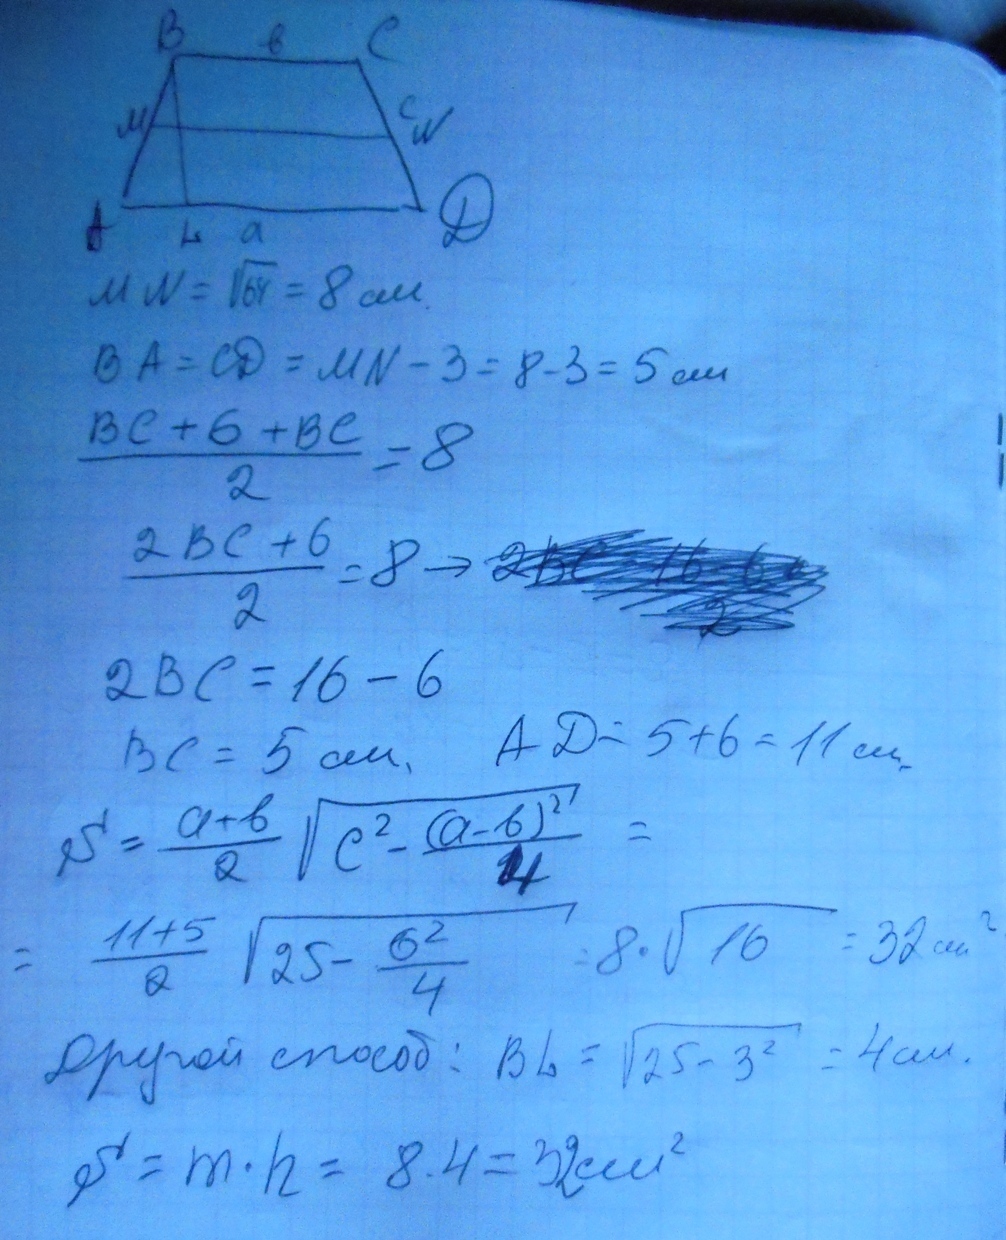 B в C
M C N
A L a D
MN = √64 = 8 см.
BA = CD = MN - 3 = 8 - 3 = 5 см
(BC + 6 + BC)/2 = 8
(2BC + 6)/2 = 8 →
2BC = 16 - 6
BC = 5 см. AD = 5 + 6 = 11 см.
S = (a+в)/2 √(c² - (a-в)²/4) =
= (11+5)/2 √(25 - 6²/4) = 8·√16 = 32 см²
Другой способ: BL = √(25 - 3²) = 4 см.
S = m·h = 8·4 = 32 см²